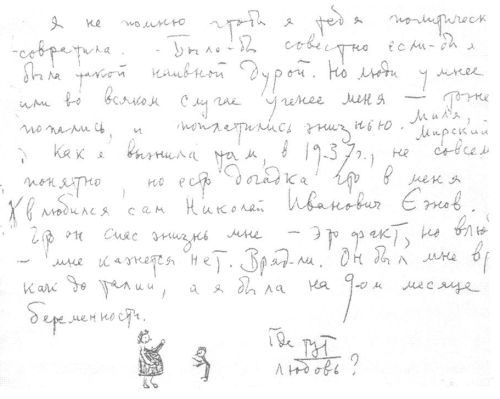 Я не помню чтобы я тебя политическ
-совратила. - Было-бы совестно если-бы я
была такой наивной дурой. Но люди умнее
или во всяком случае ученее меня — тоже
попались, и поплатились жизнью. Миля,
Мирский
Как я выжила там, в 1937г., не совсем
понятно, но есть догадка что в меня
влюбился сам Николай Иванович Ежов.
Что он спас жизнь мне - это факт, но влю
- мне кажется нет. Вряд-ли. Он был мне вр
как до талии, а я была на 9-ом месяце
беременности.
Где тут
любовь?